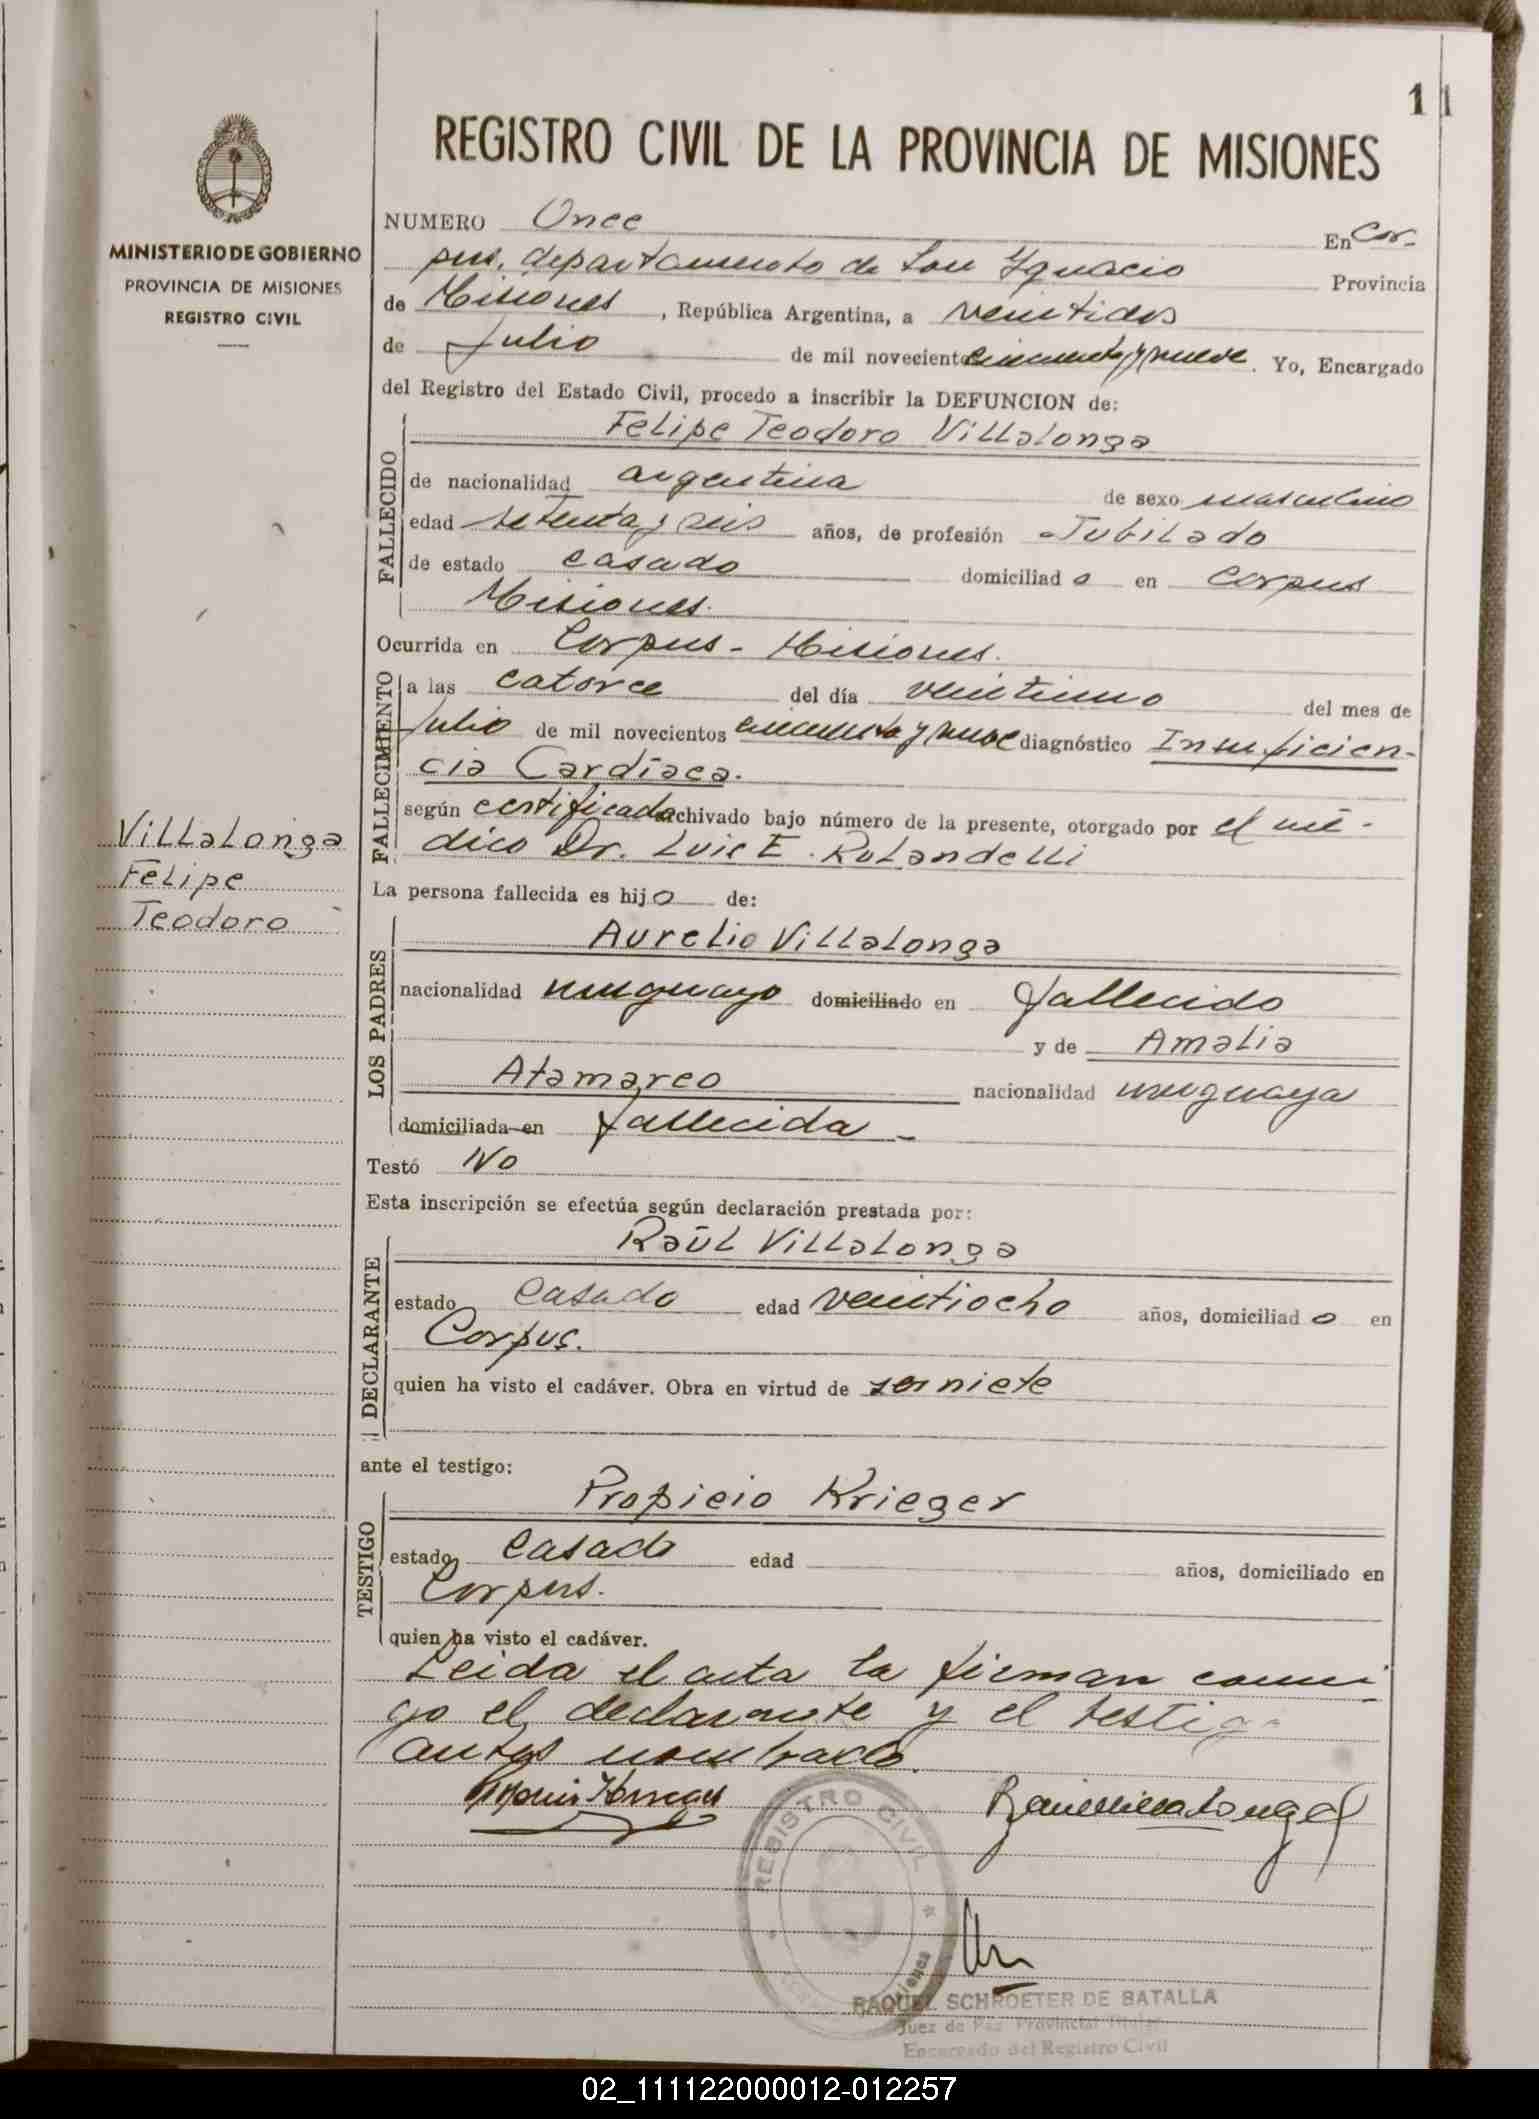 11
REGISTRO CIVIL DE LA PROVINCIA DE MISIONES
MINISTERIO DE GOBIERNO
PROVINCIA DE MISIONES
REGISTRO CIVIL
NUMERO Once En Cor-
pus, departamento de San Ygnacio Provincia
de Misiones, República Argentina, a veintidos
de Julio de mil novecientos cincuenta y nueve. Yo, Encargado
del Registro del Estado Civil, procedo a inscribir la DEFUNCION de:
FALLECIDO
Felipe Teodoro Villalonga
de nacionalidad argentina de sexo masculino
edad setenta y seis años, de profesión Jubilado
de estado casado domiciliado en Corpus
Misiones.
Ocurrida en Corpus - Misiones.
FALLECIMIENTO
a las catorce del día veintiuno del mes de
Julio de mil novecientos cincuenta y nueve diagnóstico Insuficien-
cia Cardíaca.
según certificado archivado bajo número de la presente, otorgado por el mé-
dico Dr. Luis E. Rolandelli
Villalonga
Felipe
Teodoro
La persona fallecida es hijo de:
LOS PADRES
Aurelio Villalonga
nacionalidad uruguayo domiciliado en fallecido
y de Amalia
Atamareo nacionalidad uruguaya
domiciliada en fallecida -
Testó No
Esta inscripción se efectúa según declaración prestada por:
DECLARANTE
Raúl Villalonga
estado Casado edad veintiocho años, domiciliado en
Corpus.
quien ha visto el cadáver. Obra en virtud de ser niete
ante el testigo:
TESTIGO
Propicio Krieger
estado Casado edad años, domiciliado en
Corpus.
quien ha visto el cadáver.
Leida el acta la firman conmi-
go el declarante y el testigo
antes nombrado.
REGISTRO CIVIL
RAQUEL SCHROETER DE BATALLA
Juez de Paz Provincial Titular
Encargado del Registro Civil
02_111122000012-012257